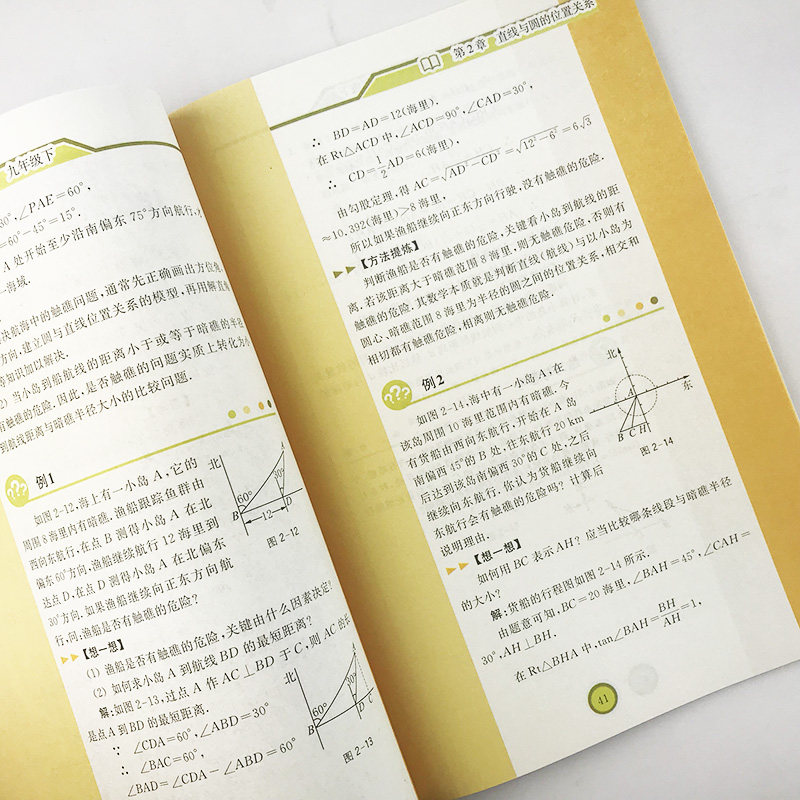 九年级下
30°,∠PAE=60°,
=60°-45°=15°.
A 处开始至少沿南偏东 75°方向航行,
海域.
决航海中的触礁问题,通常先正确画出方位角
方向,建立圆与直线位置关系的模型,再用解直
的知识加以解决.
2) 当小岛到船航线的距离小于或等于暗礁的半径
有触礁的危险.因此,是否触礁的问题实质上转化为
到航线距离与暗礁半径大小的比较问题.
例1
如图 2-12,海上有一小岛 A,它的
周围 8 海里内有暗礁.渔船跟踪鱼群由
西向东航行,在点 B 测得小岛 A 在北
偏东 60°方向,渔船继续航行 12 海里到
达点 D,在点 D 测得小岛 A 在北偏东
30°方向.如果渔船继续向正东方向航
行,问,渔船是否有触礁的危险?
北
A
60°
30°
B
D
12
图 2-12
【想一想】
(1) 渔船是否有触礁的危险,关键由什么因素决定?
(2) 如何求小岛 A 到航线 BD 的最短距离?
解:如图 2-13,过点 A 作 AC⊥BD 于 C,则 AC 的长
是点A到BD的最短距离.
∵ ∠CDA=60°,∠ABD=30°
∴ ∠BAC=60°,
∠BAD=∠CDA-∠ABD=60°
北
A
60°
30°
B
D
C
图 2-13
第 2 章 直线与圆的位置关系
∴ BD=AD=12(海里).
在 Rt△ACD 中,∠ACD=90°,∠CAD=30°,
∴ CD=1/2AD=6(海里),
由勾股定理,得 AC=√(AD²-CD²)=√(12²-6²)=6√3
≈10.392(海里)>8 海里,
所以如果渔船继续向正东方向行驶,没有触礁的危险.
【方法提炼】
判断渔船是否有触礁的危险,关键看小岛到航线的距
离,若该距离大于暗礁范围 8 海里,则无触礁危险,否则有
触礁的危险.其数学本质就是判断直线(航线)与以小岛为
圆心、暗礁范围 8 海里为半径的圆之间的位置关系,相交和
相切都有触礁危险,相离则无触礁危险.
例2
如图 2-14,海中有一小岛 A,在
该岛周围 10 海里范围内有暗礁.今
有货船由西向东航行,开始在 A 岛
南偏西 45°的 B 处,往东航行 20 km
后达到该岛南偏西 30°的 C 处,之后
继续向东航行.你认为货船继续向
东航行会有触礁的危险吗?计算后
说明理由.
北
东
B C H
图 2-14
【想一想】
如何用 BC 表示 AH?应当比较哪条线段与暗礁半径
的大小?
解:货船的行程图如图 2-14 所示.
由题意可知,BC=20 海里,∠BAH=45°,∠CAH=
30°,AH⊥BH.
在 Rt△BHA 中,tan∠BAH=BH/AH=1,
41